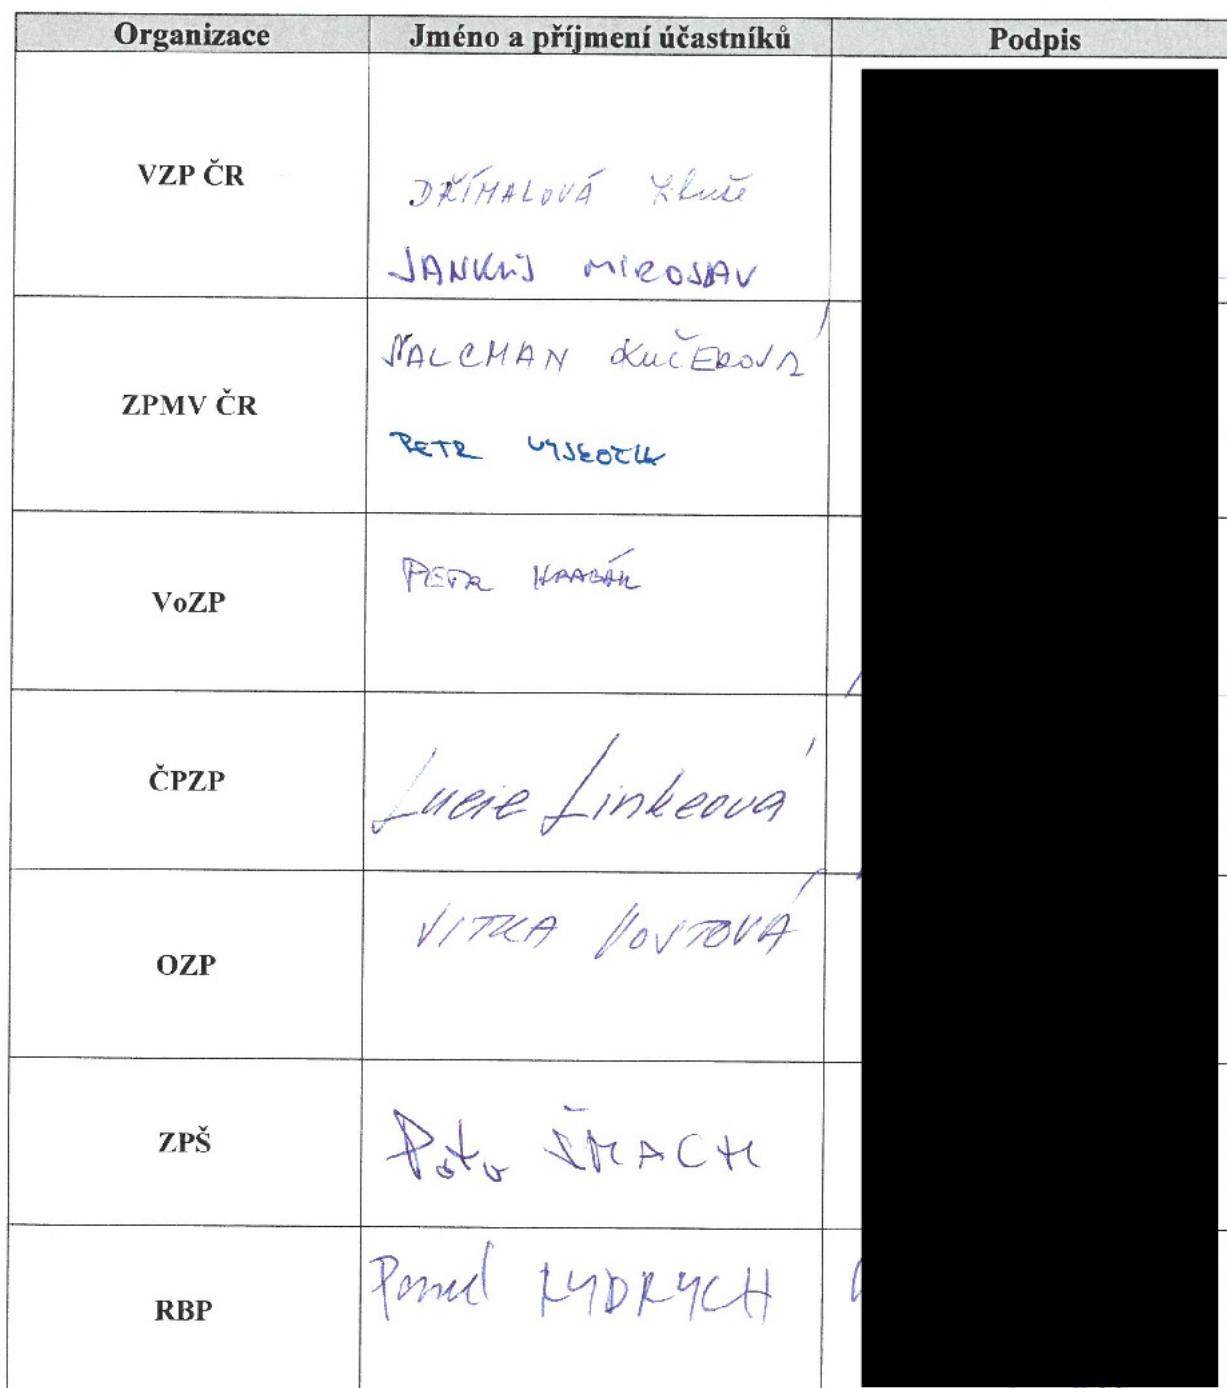 Organizace Jméno a příjmení účastníků Podpis
VZP ČR
DŘÍMALOVÁ
JANKŮJ MIROSLAV
ZPMV ČR
KUČEROVÁ
PETR
VoZP
PETR
ČPZP
Lucie Linkeová
OZP
JITKA VOJTOVÁ
ZPŠ
Petr ŠMACH
RBP
Pavel RYDRYCH